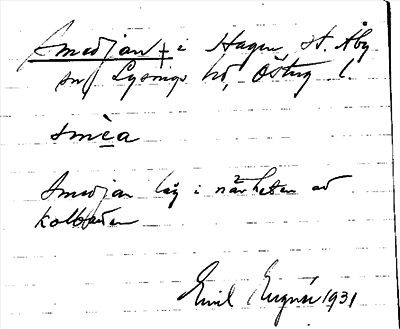 Smedjan + i Hagen, St. Åby
sn, Lysings hd, Östg l.
smèa
Smedjan låg i närheten av
kolboden
Emil 1931